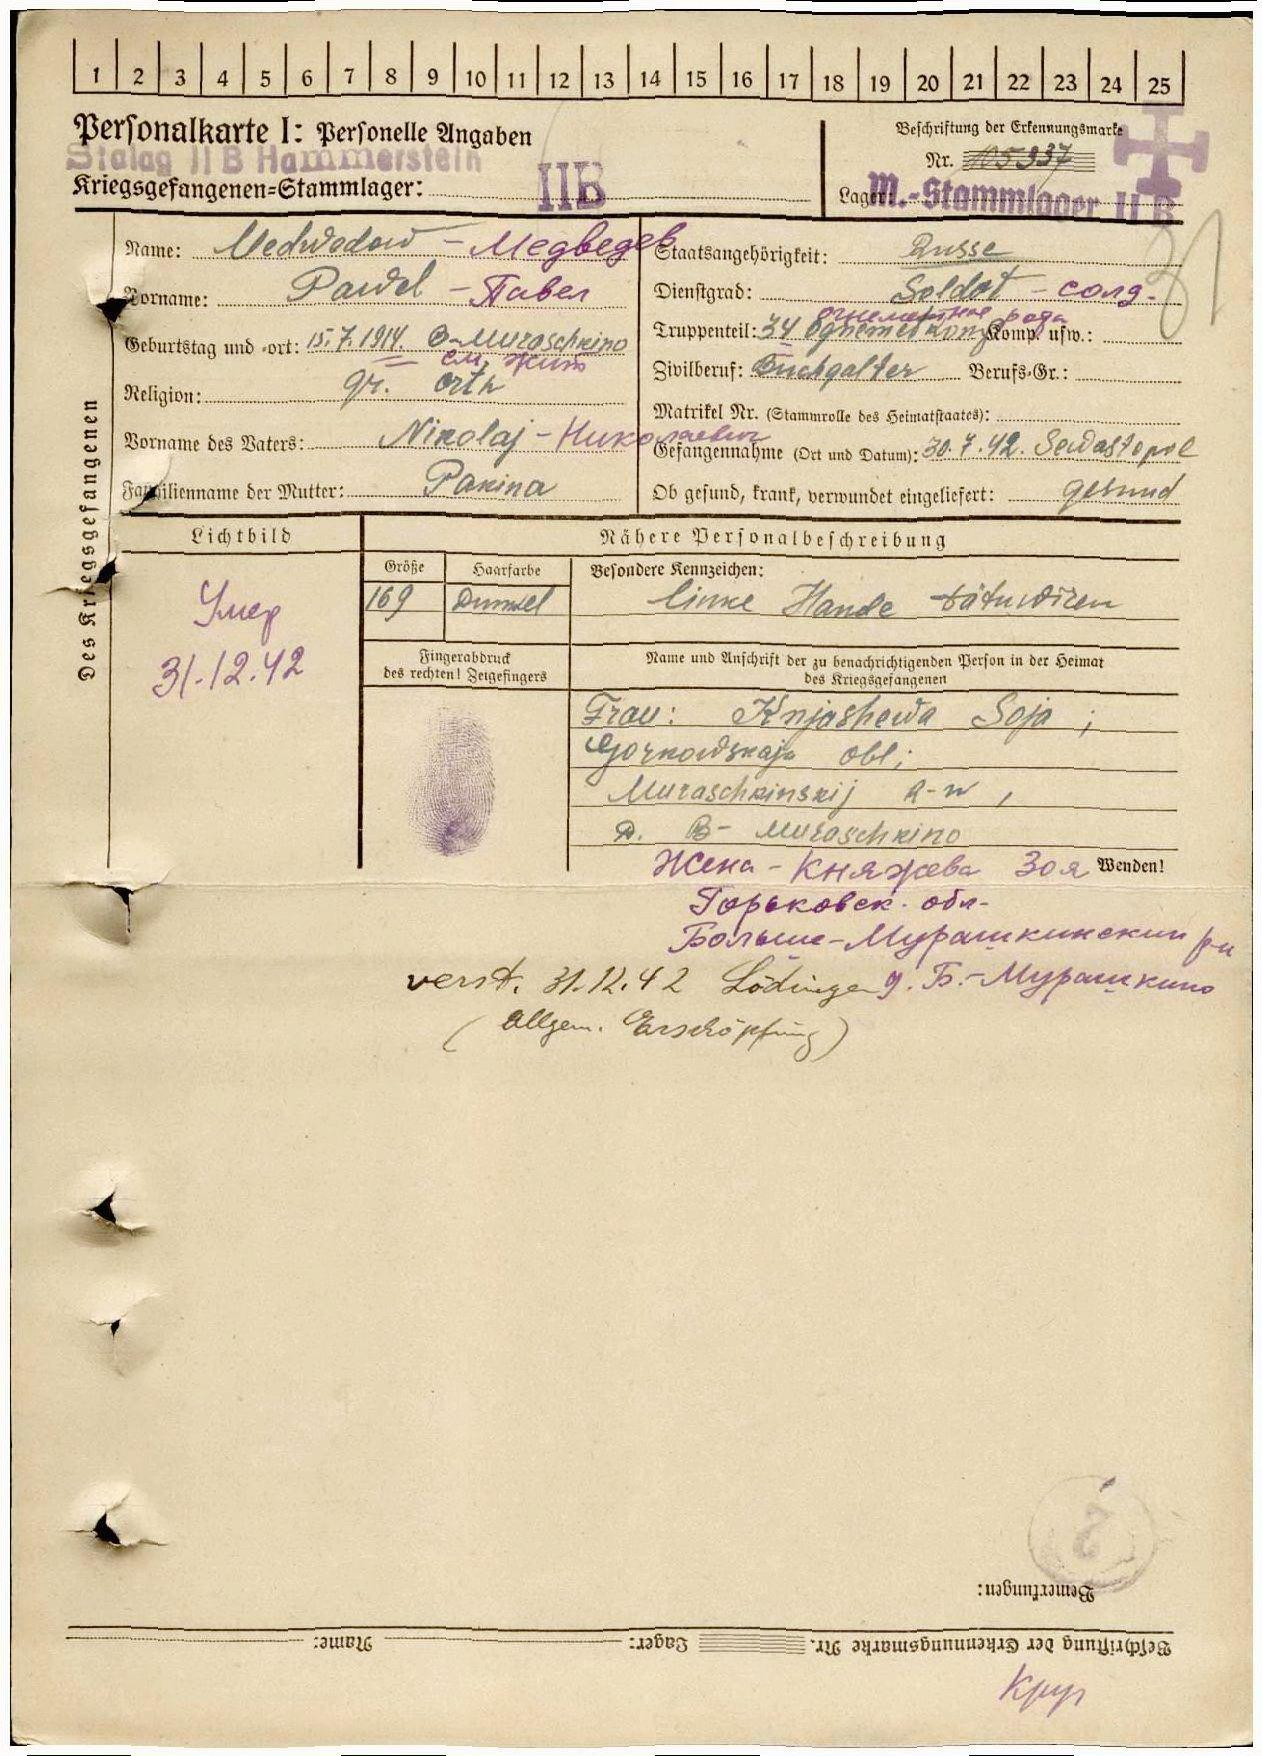 1 2 3 4 5 6 7 8 9 10 11 12 13 14 15 16 17 18 19 20 21 22 23 24 25
Personalkarte I: Personelle Angaben
Stalag II B Hammerstein
Kriegsgefangenen-Stammlager: IIB
Beschriftung der Erkennungsmarke
Nr. 105337
Lager: M.-Stammlager II B
31
Des Kriegsgefangenen
Name: Medwedew - Медведев
Vorname: Pawel - Павел
Geburtstag und -ort: 15.7.1914. B-Muraschkino
см. жит
Religion: gr. orth
Vorname des Vaters: Nikolaj - Николаевич
Familienname der Mutter: Panina
Staatsangehörigkeit: Russe
Dienstgrad: Soldat - солд.
огнеметная рота
Truppenteil: 34 Komp. usw.:
Zivilberuf: Buchgalter Berufs-Gr.:
Matrikel Nr. (Stammrolle des Heimatstaates):
Gefangennahme (Ort und Datum): 30.7.42. Sewastopol
Ob gesund, krank, verwundet eingeliefert: gesund
Lichtbild
Умер
31.12.42
Nähere Personalbeschreibung
Größe Haarfarbe Besondere Kennzeichen:
169 Dunkel linke Hande tätuwiren
Fingerabdruck
des rechten! Zeigefingers
Name und Anschrift der zu benachrichtigenden Person in der Heimat
des Kriegsgefangenen
Frau: Knjashewa Soja;
Gorkowskaja obl;
Muraschkinskij R-n,
D. B- Muraschkino
Wenden!
Жена - Княжева Зоя
Горьковск. обл-
Больше-Мурашкинский р-н
д. Б.-Мурашкино
verst. 31.12.42 Lödingen
(Allgem. Erschöpfung)
2
Bemerkungen:
Beschriftung der Erkennungsmarke Nr. Lager: Name: